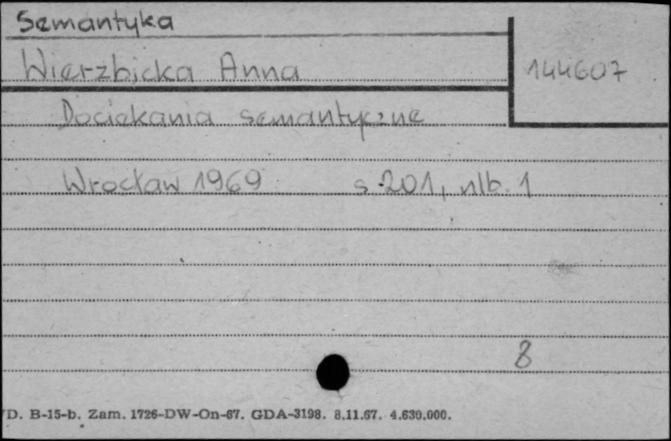 Semantyka
Wierzbicka Anna
144607
Dociekania semantyczne
Wrocław 1969 s. 201, nlb. 1
8
D. B-15-b. Zam. 1726-DW-On-67. GDA-3198. 8.11.67. 4.630.000.